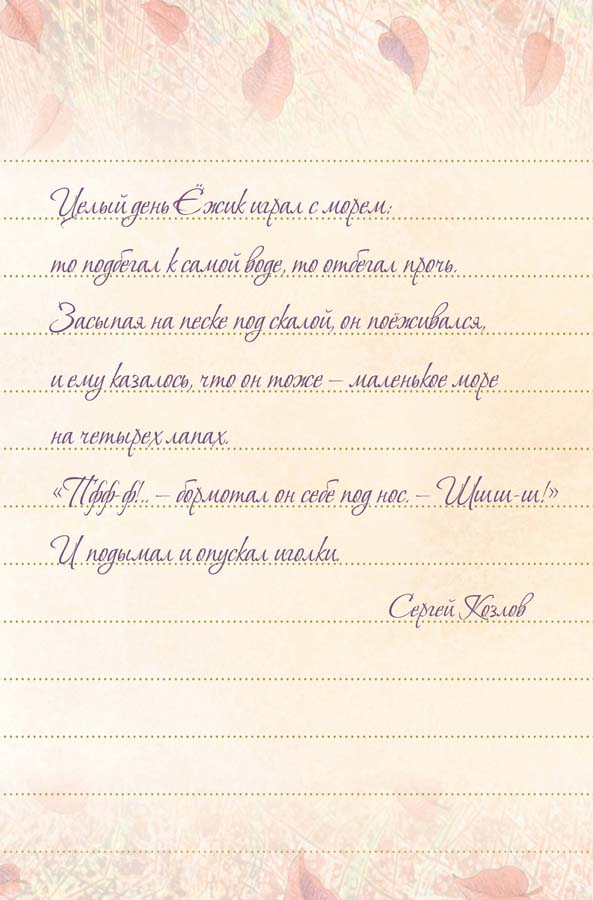 Целый день Ёжик играл с морем:
то подбегал к самой воде, то отбегал прочь.
Засыпая на песке под скалой, он поёживался,
и ему казалось, что он тоже – маленькое море
на четырех лапах.
«Пфф-ф!.. – бормотал он себе под нос. – Шшш-ш!»
И подымал и опускал иголки.
Сергей Козлов